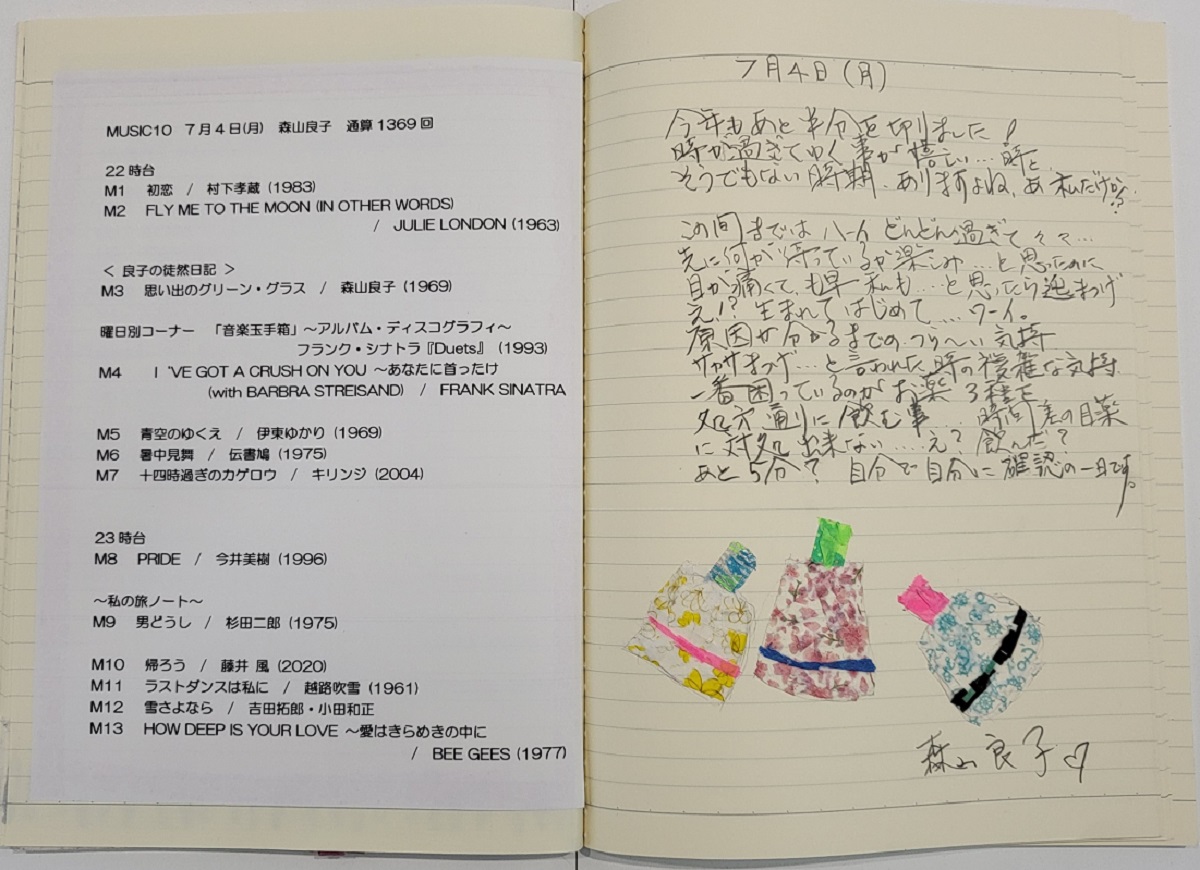 MUSIC10　7月4日(月)　森山良子　通算1369回
22時台
M1　初恋　/　村下孝蔵 (1983)
M2　FLY ME TO THE MOON (IN OTHER WORDS)
/　JULIE LONDON (1963)
＜ 良子の徒然日記 ＞
M3　思い出のグリーン・グラス　/　森山良子 (1969)
曜日別コーナー　「音楽玉手箱」～アルバム・ディスコグラフィ～
フランク・シナトラ『Duets』 (1993)
M4　I 'VE GOT A CRUSH ON YOU ～あなたに首ったけ
(with BARBRA STREISAND)　/　FRANK SINATRA
M5　青空のゆくえ　/　伊東ゆかり (1969)
M6　暑中見舞　/　伝書鳩 (1975)
M7　十四時過ぎのカゲロウ　/　キリンジ (2004)
23時台
M8　PRIDE　/　今井美樹 (1996)
～私の旅ノート～
M9　男どうし　/　杉田二郎 (1975)
M10　帰ろう　/　藤井 風 (2020)
M11　ラストダンスは私に　/　越路吹雪 (1961)
M12　雪さよなら　/　吉田拓郎・小田和正
M13　HOW DEEP IS YOUR LOVE ～愛はきらめきの中に
/　BEE GEES (1977)
7月4日(月)
今年もあと半分を切りました!
時が過ぎてゆく事が嬉しい…時と
そうでもない時期、ありますよね、あ 私だけか!?
この間までは ハーイ どんどん過ぎて々々…
先に何が待っているか楽しみ…と思ったのに
目が痛くて、も早 私も…と思ったら逆まつげ
え!? 生まれてはじめて…ワーイ。
原因が分かるまでのつら～い気持
サカサまつげ…と言われた時の複雑な気持
一番困っているのがお薬 3種を
処方通りに飲む事… 時間差の目薬
に対処出来ない….え? 飲んだ?
あと5分? 自分で自分に確認の一日です。
森山良子♡